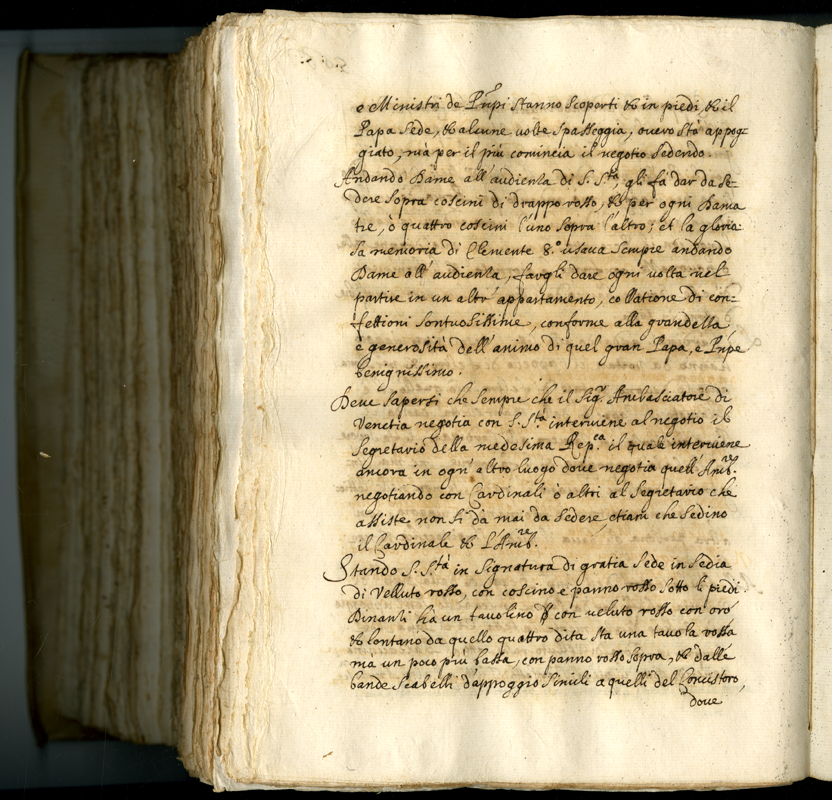 e Ministri de Prñpi stanno scoperti & in piedi, & il
Papa sede, & alcune volte spasseggia, overo stà appog=
giato, mà per il più comincia il negotio sedendo.
Andando Dame all'audienza di S. S.tà, gli fà dar da se=
dere sopra coscini di drappo rosso, & per ogni Dama
tre, ò quattro coscini l'uno sopra l'altro; et la glorio=
sa memoria di Clemente 8.º usava sempre andando
Dame all'audienza, fargli dare ogni volta nel
partire in un altr'appartamento, collatione di con=
fettioni sontuosissime, conforme alla grandezza
è generosità dell'animo di quel gran Papa, e Prñpe
benignissimo.
Deve sapersi che sempre che il Sig.r Ambasciatore di
Venetia negotia con S. S.tà interviene al negotio il
segretario della medesima Rep.ca il quale interviene
ancora in ogn'altro luogo dove negotia quell'Amb.re
negotiando con Cardinali ò altri al segretario che
assiste non si da mai da sedere, etiam che sedino
il Cardinale & L'Amb.re
Stando S. S.tà in signatura di gratia sede in sedia
di Velluto rosso, con coscino e panno rosso sotto li piedi
Dinanzi hà un tavolino con veluto rosso con oro
& lontano da quello quattro dita sta una tavola rossa
mà un poco più bassa, con panno rosso sopra, & dalle
bande scabelli d'appoggio simili a quelli del Concistoro,
dove